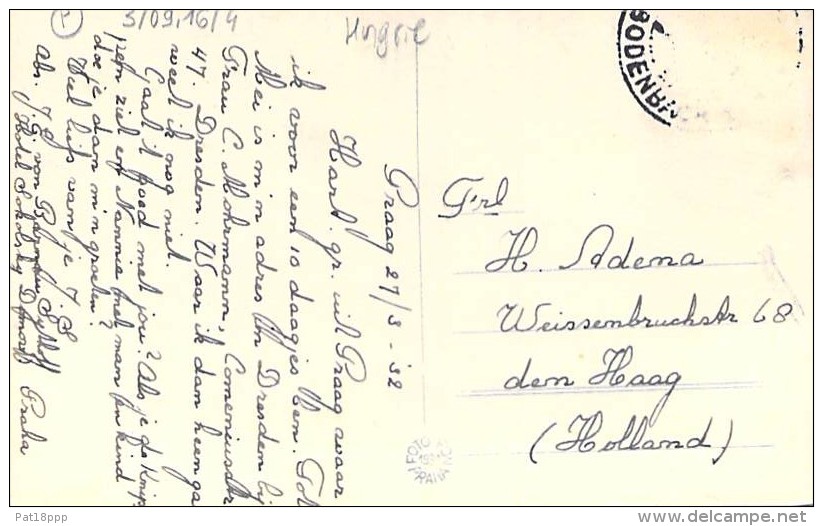 3/09,16/4
Hngrie
BODENBA
Praag 27/3 - 32
Hart. gr. uit Praag waar
ik voor een 10 daagjes ben. Tot
Mei is m'n adres in Dresden bij
Frau C. Mohrmann, Comeniusstr
47. Dresden. Waar ik dan heen ga
weet ik nog niet.
Gaat 't goed met jou? Als je
ziet en Nannie met man en kind
doe je dan m'n groeten?
Veel liefs van je J. S.
Abs. J. S. von
Hotel Praha
Frl
H. Adema
Weissenbruchstr 68
den Haag
(Holland)
Pat18ppp
www.delcampe.net